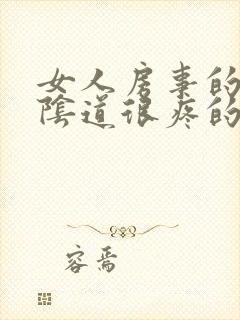 女人房事的
陰道很疼的
容焉